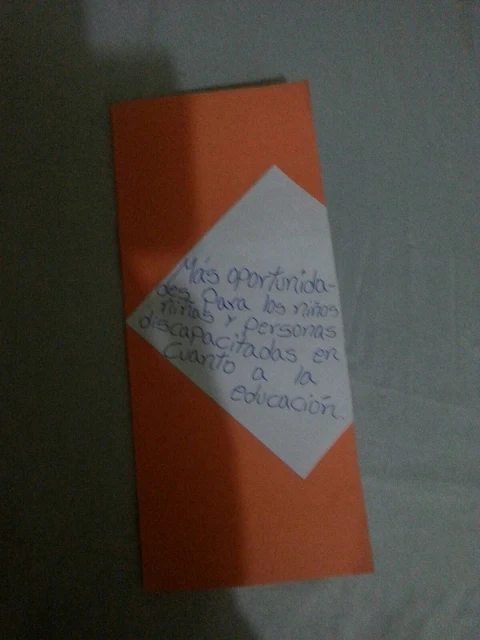 Más oportunida-
des para los niños
niñas y personas
discapacitadas en
cuanto a la
educación.